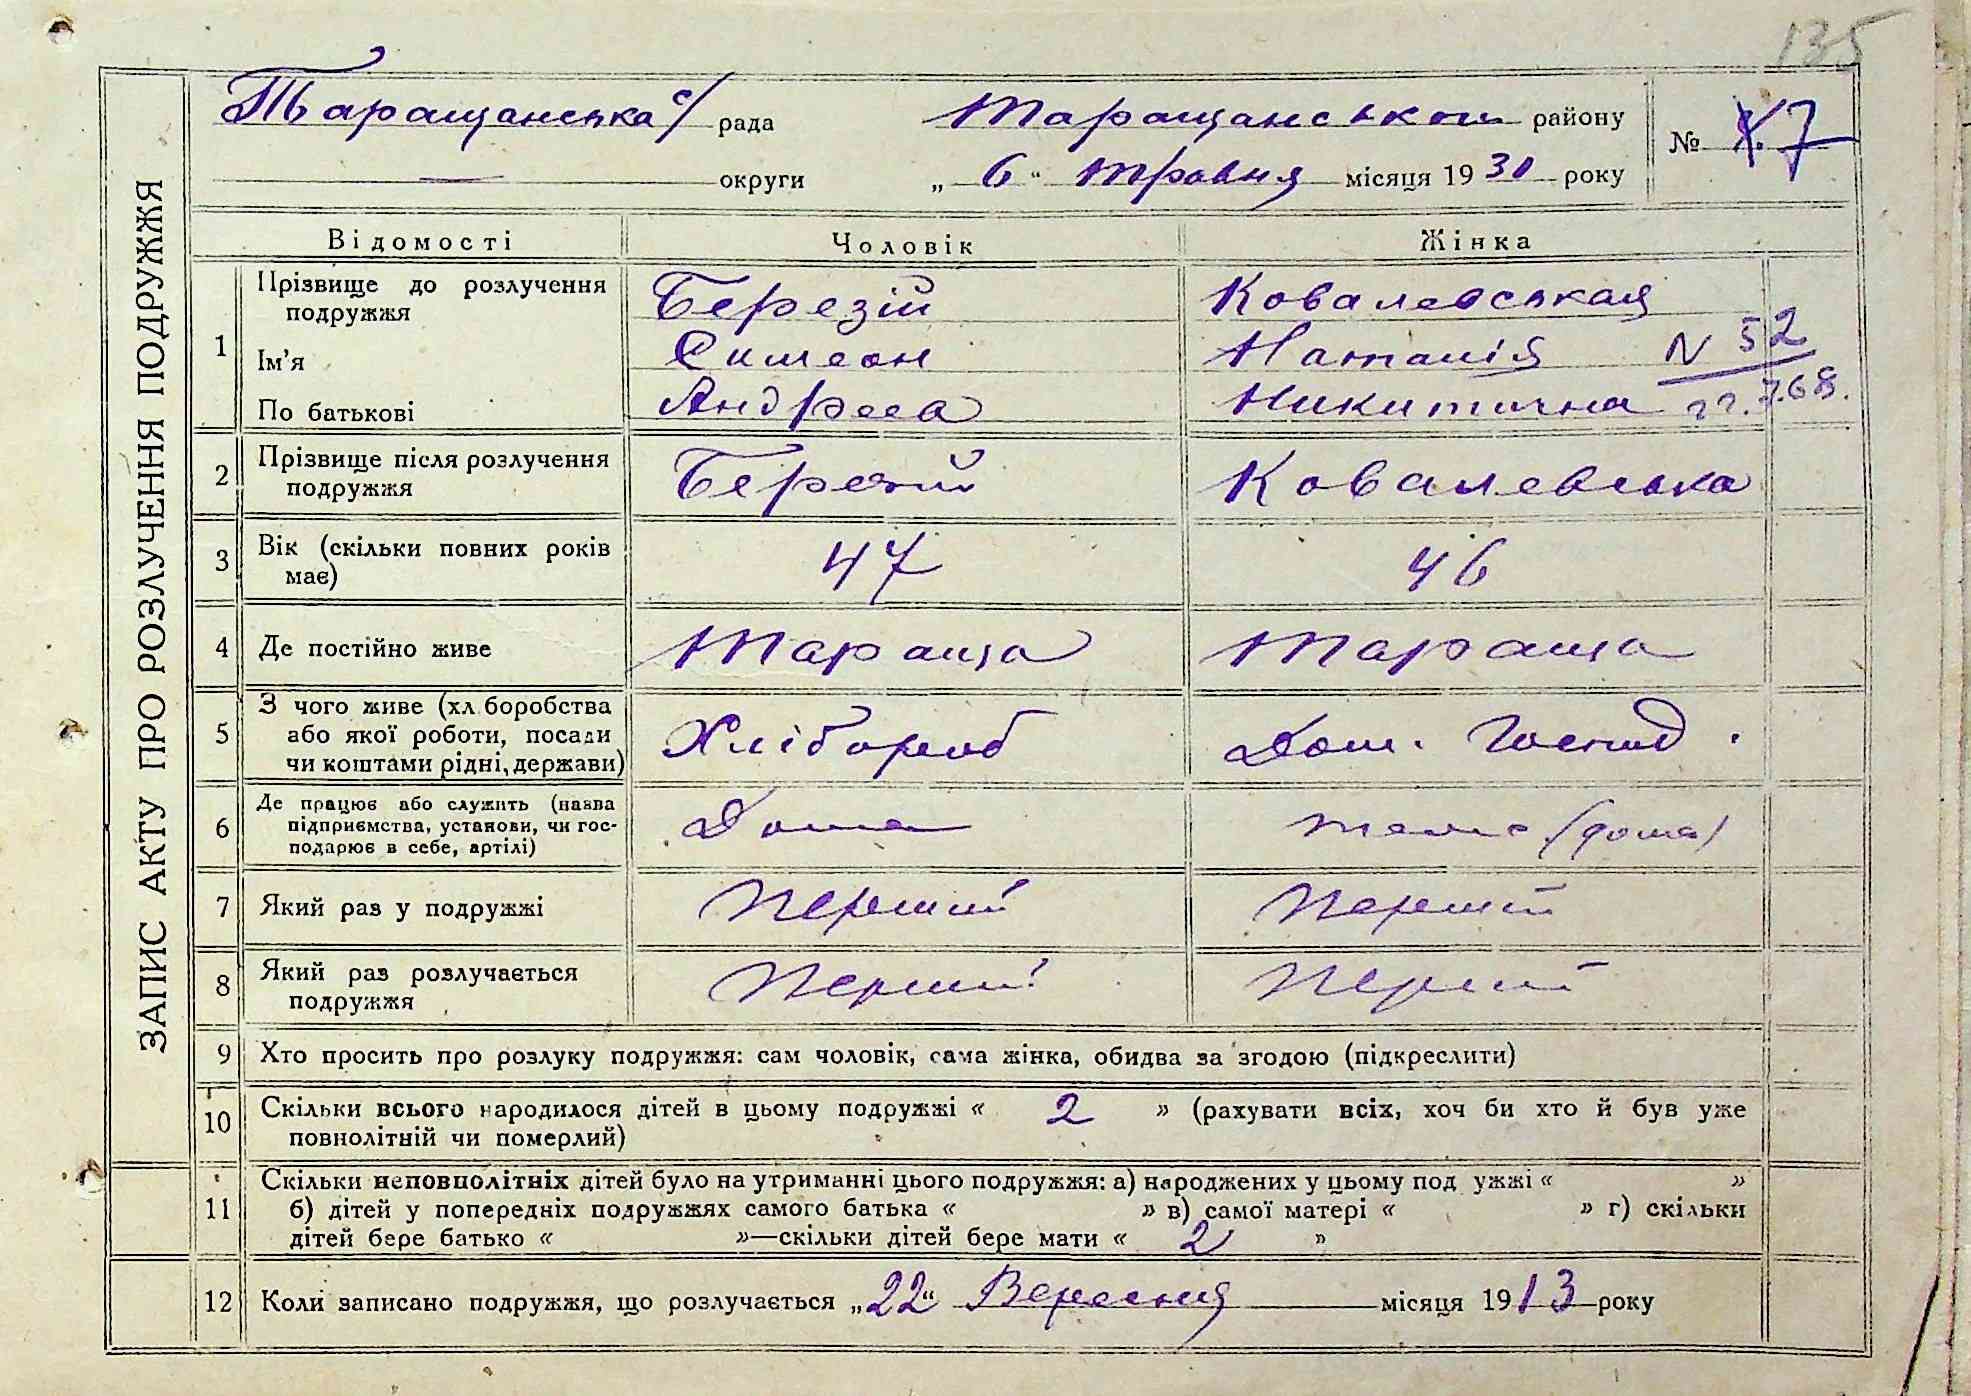 135
ЗАПИС АКТУ ПРО РОЗЛУЧЕННЯ ПОДРУЖЖЯ
Таращанська с/ рада Таращанськог району № 7
— округи „ 6 “ травня місяця 1930 року
Відомості Чоловік Жінка
1 Прізвище до розлучення подружжя Березій Ковалевськая
Ім’я Симеон Наталія N 52
По батькові Андреев Никитична 22.7.68.
2 Прізвище після розлучення подружжя Березій Ковалевська
3 Вік (скільки повних років має) 47 46
4 Де постійно живе Тараща Тараща
5 З чого живе (хл боробства або якої роботи, посади чи коштами рідні, держави) Хлібороб Дом. Господ.
6 Де працює або служить (назва підприємства, установи, чи господарює в себе, артілі) Дома теж (дома)
7 Який раз у подружжі Перший Перший
8 Який раз розлучається подружжя Перший Перший
9 Хто просить про розлуку подружжя: сам чоловік, сама жінка, обидва за згодою (підкреслити)
10 Скільки всього народилося дітей в цьому подружжі « 2 » (рахувати всіх, хоч би хто й був уже
повнолітній чи померлий)
11 Скільки неповнолітніх дітей було на утриманні цього подружжя: а) народжених у цьому под ужжі « »
б) дітей у попередніх подружжях самого батька « » в) самої матері « » г) скільки
дітей бере батько « »—скільки дітей бере мати « 2 »
12 Коли записано подружжя, що розлучається „22“ Вересня місяця 1913 року